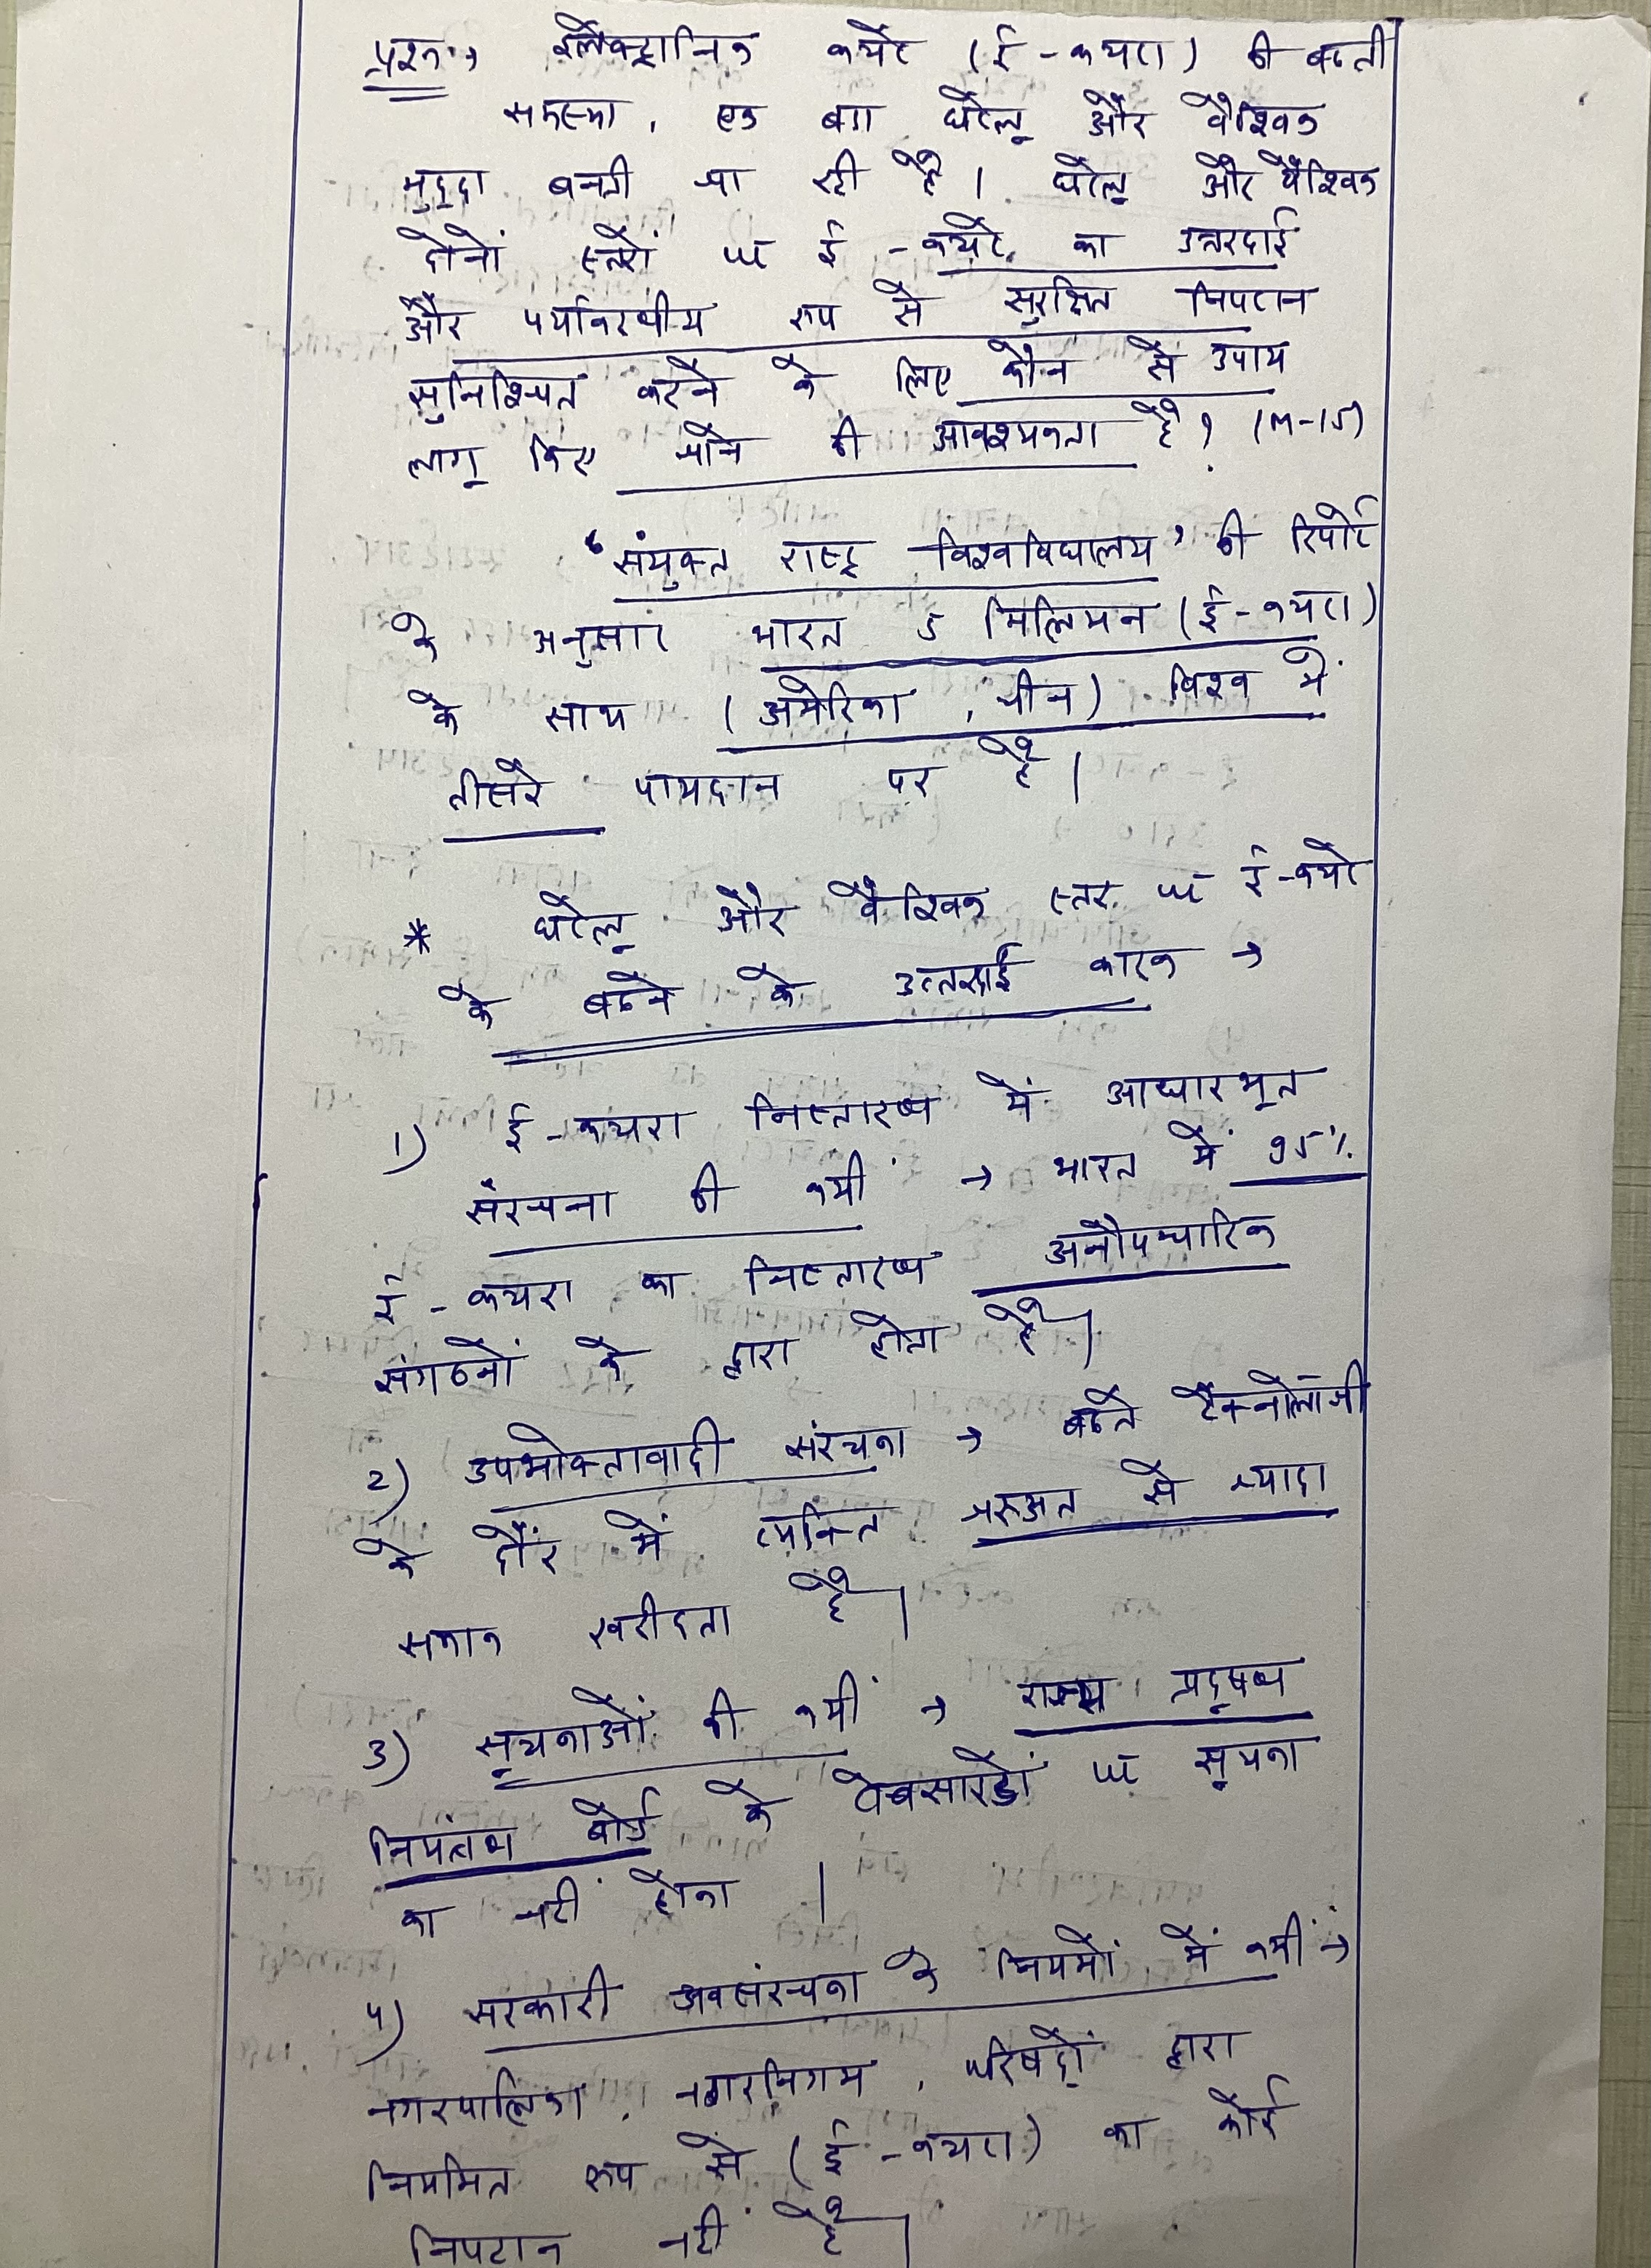 प्रश्न:→ इलेक्ट्रानिक कचरे (ई-कचरा) की बढती
समस्या, एक बडा घरेलू और वैश्विक
मुद्दा बनती जा रही है। घरेलू और वैश्विक
दोनों स्तरों पर ई-कचरे का उत्तरदाई
और पर्यावरणीय रूप से सुरक्षित निपटान
सुनिश्चित करने के लिए कौन से उपाय
लागू किए जाने की आवश्यकता है? (M-15)
'संयुक्त राष्ट्र विश्वविद्यालय' की रिपोर्ट
के अनुसार भारत 5 मिलियन (ई-कचरा)
के साथ (अमेरिका, चीन) विश्व में
तीसरे पायदान पर है।
* घरेलू और वैश्विक स्तर पर ई-कचरे
के बढने के उत्तरदाई कारक →
1) ई-कचरा निस्तारण में आधारभूत
संरचना की कमी → भारत में 95%
ई-कचरा का निस्तारण अनौपचारिक
संगठनों के द्वारा होता है।
2) उपभोक्तावादी संरचना → बढते टैक्नोलॉजी
के दौर में व्यक्ति जरुअत से ज्यादा
समान खरीदता है।
3) सूचनाओं की कमी → राज्य प्रदूषण
नियंत्रण बोर्ड के वेबसाइडों पर सूचना
का नहीं होना।
4) सरकारी अवसंरचना के नियमों में कमी →
नगरपालिका, नगरनिगम, परिषदों द्वारा
नियमित रूप से (ई-कचरा) का कोई
निपटान नहीं है।